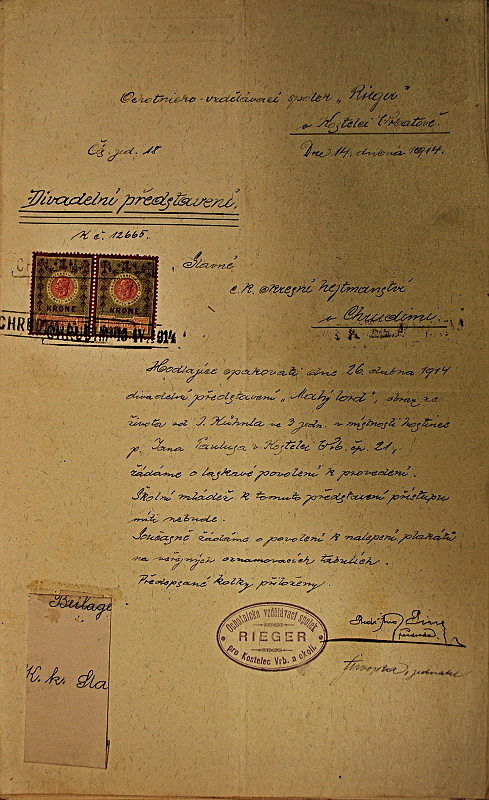 Ochotnicko-vzdělávací spolek „Rieger"
v Kostelci Vrbatově.
Čís. jed. 18
Dne 14. dubna 1914.
Divadelní představení.
K č. 12665.
Slavné
c. k. okresní hejtmanství
v Chrudimi.
KRONE KRONE
CHRUDIM 914
Hodlajíce opakovati dne 26. dubna 1914
divadelní představení „Malý lord", obraz ze
života od J. Kühnla ve 3 jedn. v místnosti hostince
p. Jana Paulusa v Kostelci Vrb. čp. 21,
žádáme o laskavé povolení k provedení.
Školní mládež k tomuto představení přístupu
míti nebude.
Současně žádáme o povolení k nalepení plakátů
na veřejných oznamovacích tabulích.
Předepsané kolky přiloženy.
Ochotnicko vzdělávací spolek
RIEGER
pro Kostelec Vrb. a okolí.
předseda
jednatel
Beilage
K. k. Sta